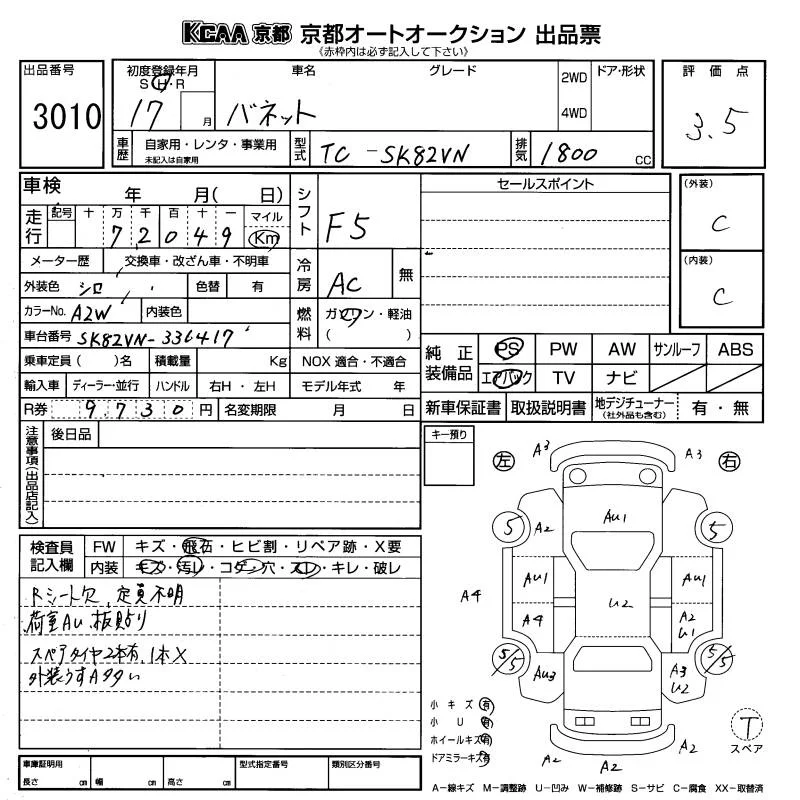 KCAA 京都 京都オートオークション 出品票
《赤枠内は必ず記入して下さい》
出品番号
3010
初度登録年月
S・H・R
17 月
車名
バネット
グレード
2WD
4WD
ドア・形状
評価点
3.5
車歴
自家用・レンタ・事業用
未記入は自家用
型式
TC-SK82VN
排気
1800 CC
車検 年 月( 日)
走行
記号 十 万 千 百 十 一 マイル
7 2 0 4 9 Km
シフト
F5
セールスポイント
(外装)
C
(内装)
C
メーター歴 交換車・改ざん車・不明車
外装色 シロ 色替 有
カラーNo. A2W 内装色
車台番号 SK82VN-336417
冷房
AC 無
燃料
ガソリン・軽油
( )
乗車定員( )名 積載量 Kg NOX 適合・不適合
輸入車 ディーラー・並行 ハンドル 右H・左H モデル年式 年
R券 9730 円 名変期限 月 日
純正装備品
PS PW AW サンルーフ ABS
エアバック TV ナビ
新車保証書 取扱説明書 地デジチューナー
(社外品も含む)
有・無
注意事項(出品店記入)
後日品
キー預り
検査員記入欄
FW キズ・飛石・ヒビ割・リペア跡・X要
内装 キズ・汚レ・コゲ・穴・スレ・キレ・破レ
Rシート欠、定員不明
荷室AU、板貼り
スペアタイヤ2本有、1本X
外装うすAタタい
左 A3 A3 右
5 A2 AU1 5
A4 AU1 AU1
A4 U2 A2
U1
5/5 AU3 A3
U2 5/5
A2 A2 A2
小キズ有
小U有
ホイールキズ有
ドアミラーキズ有
T
スペア
車庫証明用
長さ cm 幅 cm 高さ cm
型式指定番号
類別区分番号
A-線キズ M-調整跡 U-凹み W-補修跡 S-サビ C-腐食 XX-取替済